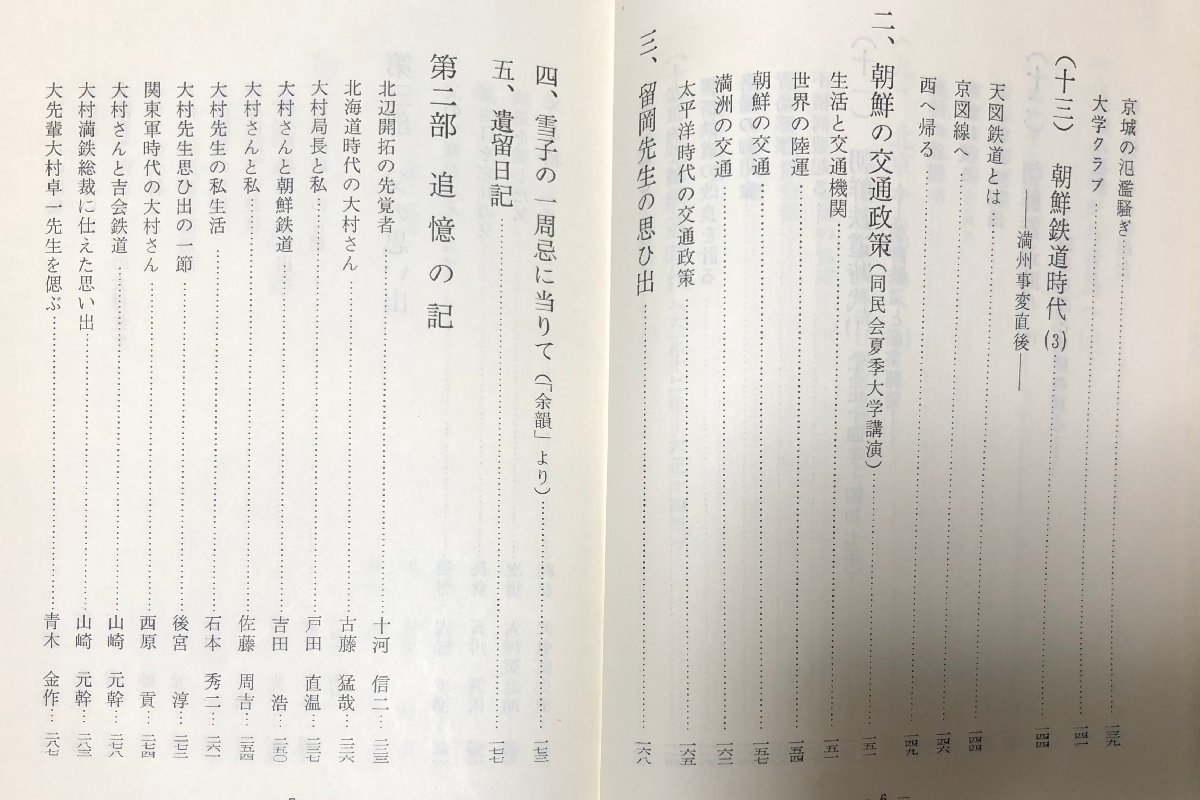 京城の氾濫騒ぎ……一三九
大学クラブ……一四一
(十三) 朝鮮鉄道時代(3)……一四四
――満州事変直後――
天図鉄道とは……一四四
京図線へ……一四六
西へ帰る……一四九
二、朝鮮の交通政策(同民会夏季大学講演)……一五一
生活と交通機関……一五一
世界の陸運……一五四
朝鮮の交通……一五七
満洲の交通……一六二
太平洋時代の交通政策……一六五
三、留岡先生の思ひ出……一六八
6
四、雪子の一周忌に当りて(「余韻」より)……一七三
五、遺留日記……一七七
第二部 追憶の記
北辺開拓の先覚者……十河 信二……二三三
北海道時代の大村さん……古藤 猛哉……二三六
大村局長と私……戸田 直温……二三七
大村さんと朝鮮鉄道……吉田 浩……二五〇
大村さんと私……佐藤 周吉……二五四
大村先生の私生活……石本 秀二……二六一
大村先生思ひ出の一節……後宮 淳……二七二
関東軍時代の大村さん……西原 貢……二七四
大村さんと吉会鉄道……山崎 元幹……二七八
大村満鉄総裁に仕えた思い出……山崎 元幹……二八三
大先輩大村卓一先生を偲ぶ……青木 金作……二八七